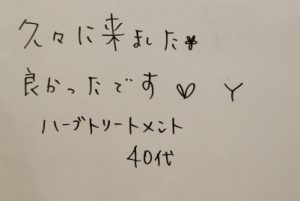 久々に来ました♥
良かったです♡ Y
ハーブトリートメント
40代